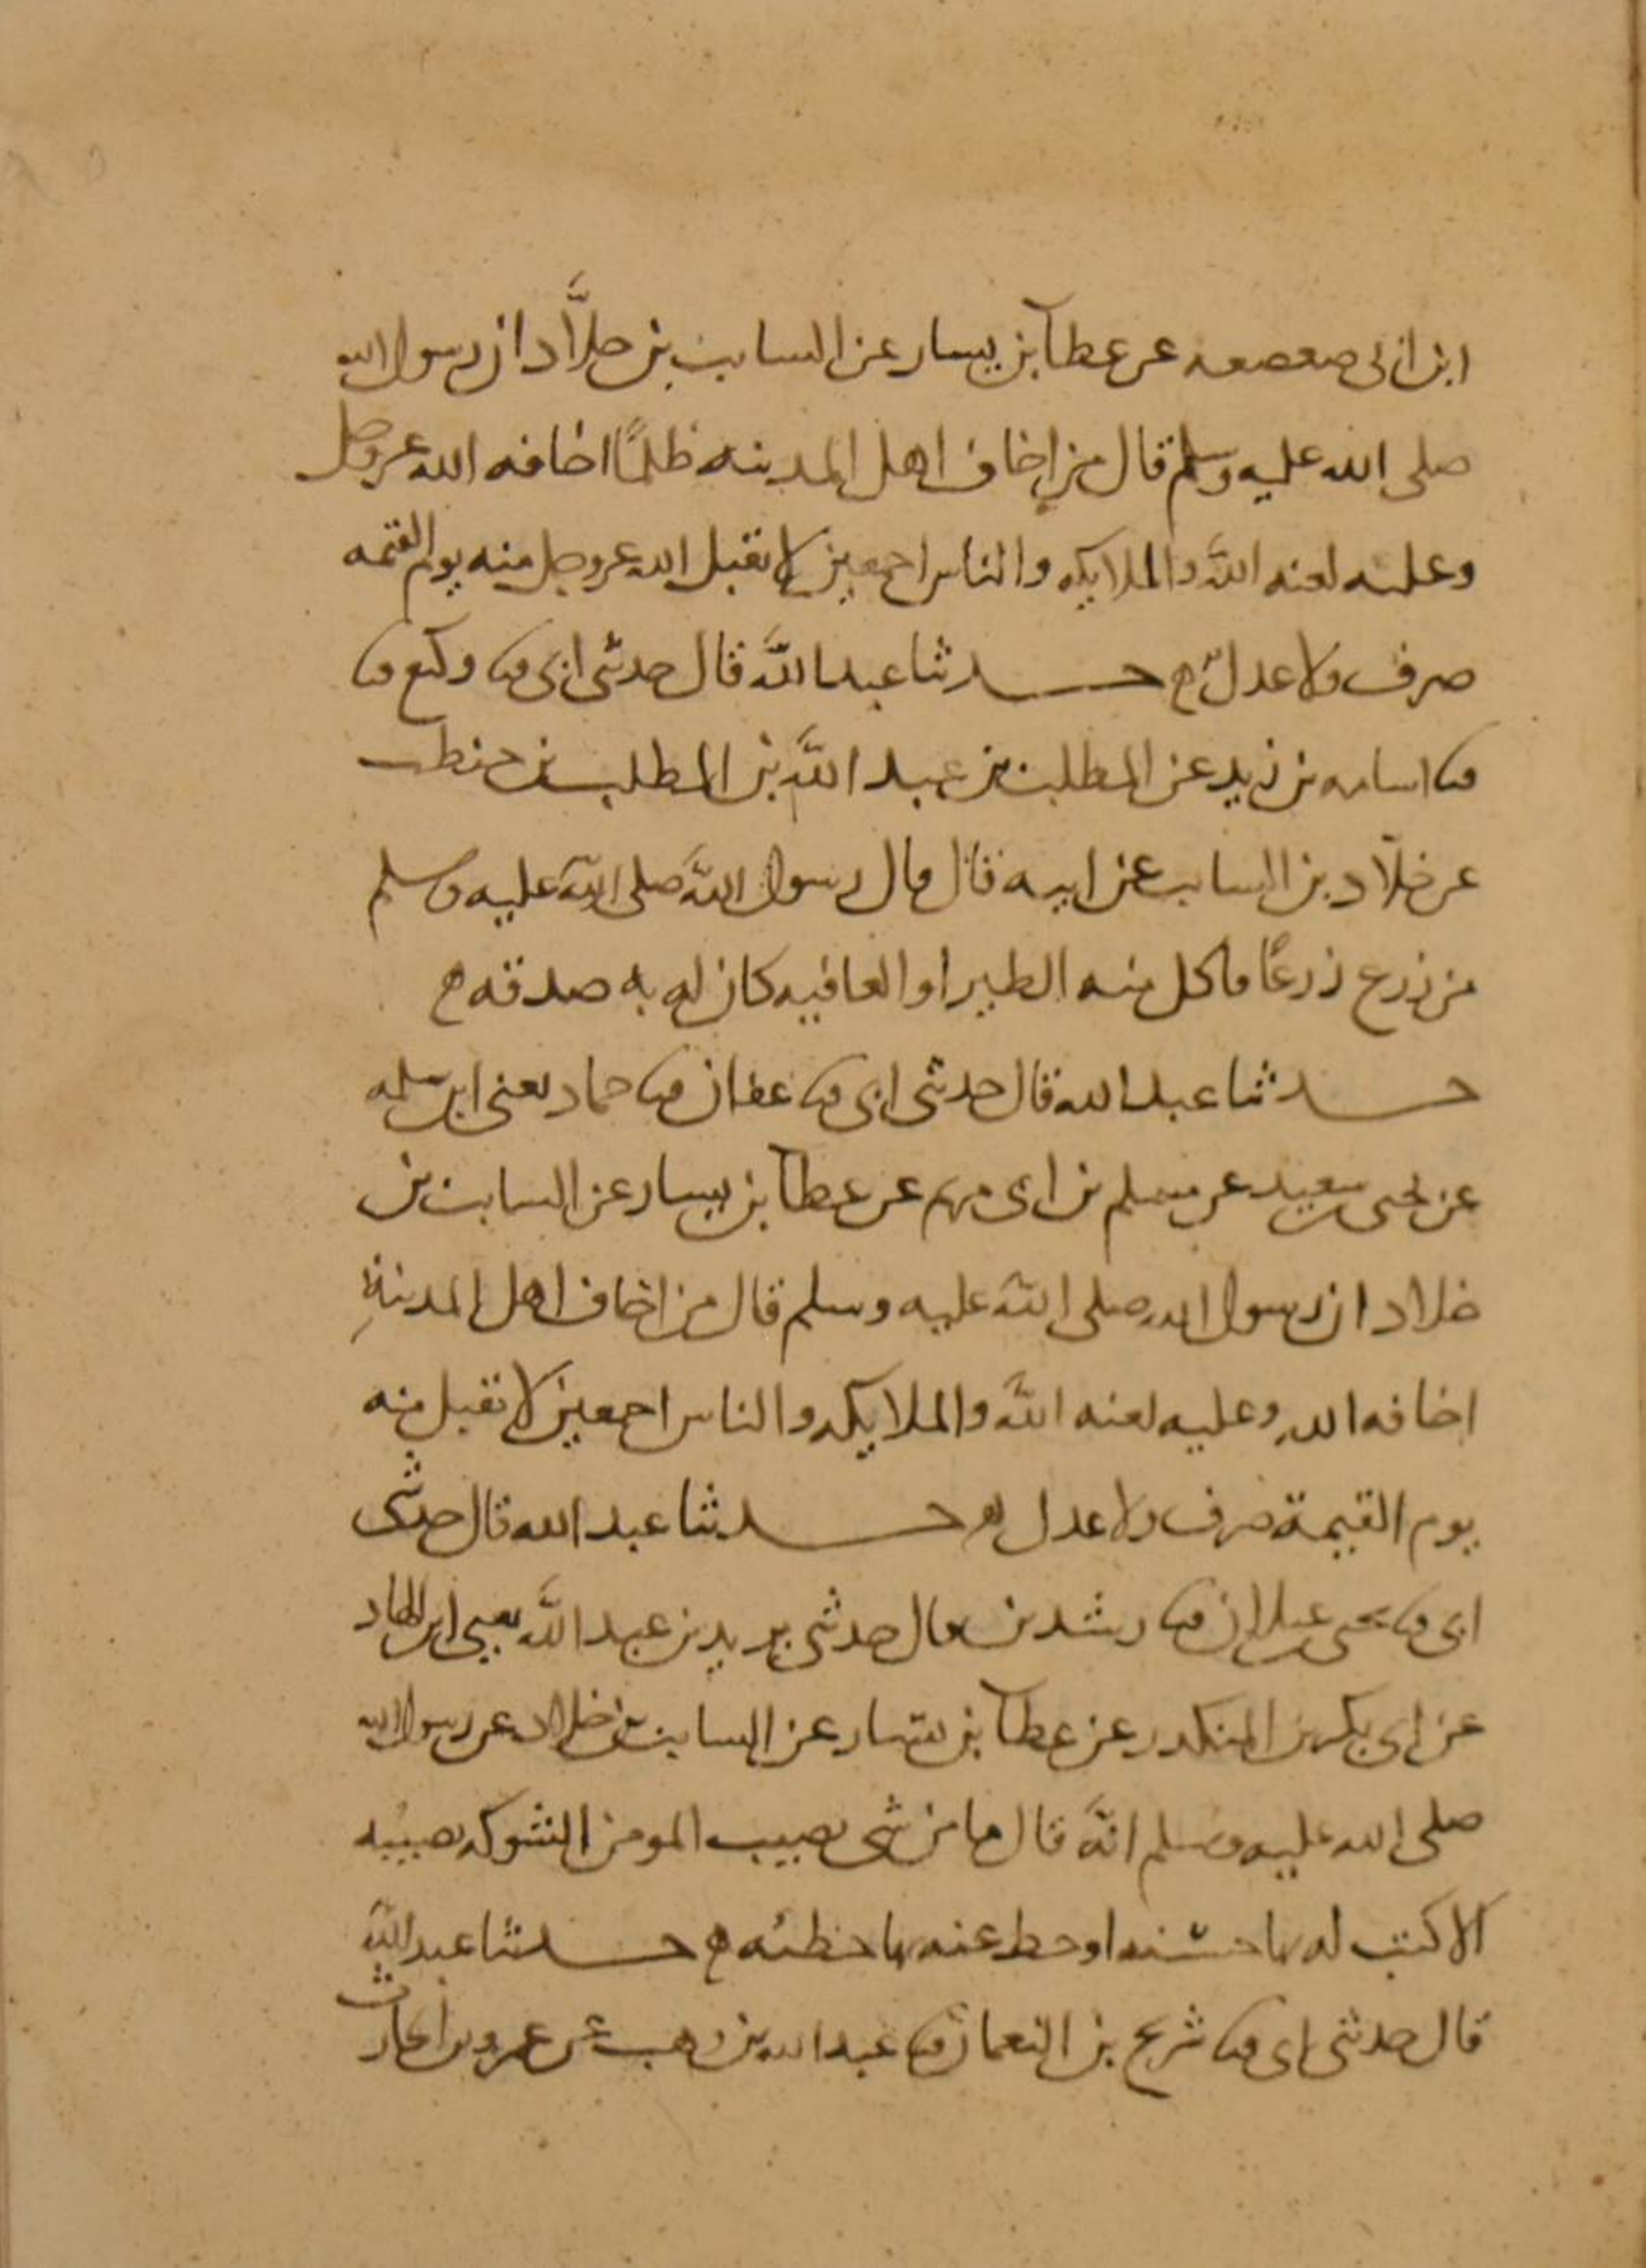 ابن ابى صعصعه عن عطآ بن يسار عن السايب بن خلَّاد ان رسول الله
صلى الله عليه وسلم قال من اخاف اهل المدينه ظلمًا اخافه الله عز وجل
وعليه لعنه اللَّه والملايكه والناس اجمعين لا يقبل الله عز وجل منه يوم القيمه
صرف ولا عدل ه حدثنا عبد اللَّه قال حدثنى ابى ثنا وكيع ثنا
ثنا اسامه بن زيد عن المطلب بن عبد اللَّه بن المطلب بن حنطب
عن خلّاد بن السايب عن ابيه قال قال رسول اللَّه صلى اللَّه عليه وسلم
من زرع زرعًا فاكل منه الطير او العافيه كان له به صدقه ه
حدثنا عبد الله قال حدثنى ابى ثنا عفان ثنا حماد يعنى ابن سلمه
عن يحيى بن سعيد عن مسلم بن ابى مريم عن عطآ بن يسار عن السايب بن
خلاد ان رسول الله صلى اللَّه عليه وسلم قال من اخاف اهل المدينةِ
اخافه الله وعليه لعنه اللَّه والملايكه والناس اجمعين لا يقبل منه
يوم القيمة صرف ولا عدل ه حدثنا عبد الله قال حدثنى
ابى ثنا يحيى بن غيلان ثنا رشدين قال حدثنى يزيد بن عبد اللَّه يعنى ابن الهاد
عن ابى بكر بن المنكدر عن عطآ بن يسار عن السايب بن خلاد عن رسول الله
صلى الله عليه وسلم انَّه قال ما من شى يصيب المومن الشوكه تصيبه
الا كتب له بها حسنه او حط عنه بها خطئه ه حدثنا عبد اللَّه
قال حدثنى ابى ثنا شريح بن النعمان ثنا عبد الله بن وهب عن عمرو بن الحارث